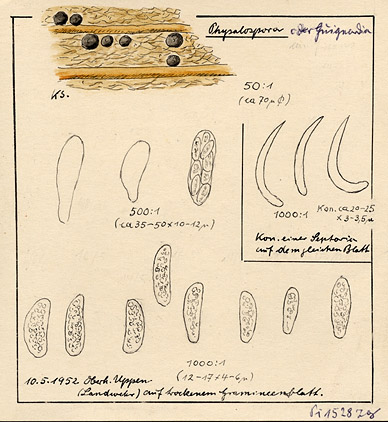 Physalospora oder Guignardia
Ks.
50:1
(ca 70µ Φ)
500:1
(ca 35-50x10-12µ)
1000:1 Kon. ca 20-25
x 3-3,5µ
Kon. einer Septoria
auf dem gleichen Blatt
1000:1
(12-17x4-6µ)
10.5.1952 Oberh. Uppen
(Landwehr) auf trockenem Gramineenblatt.